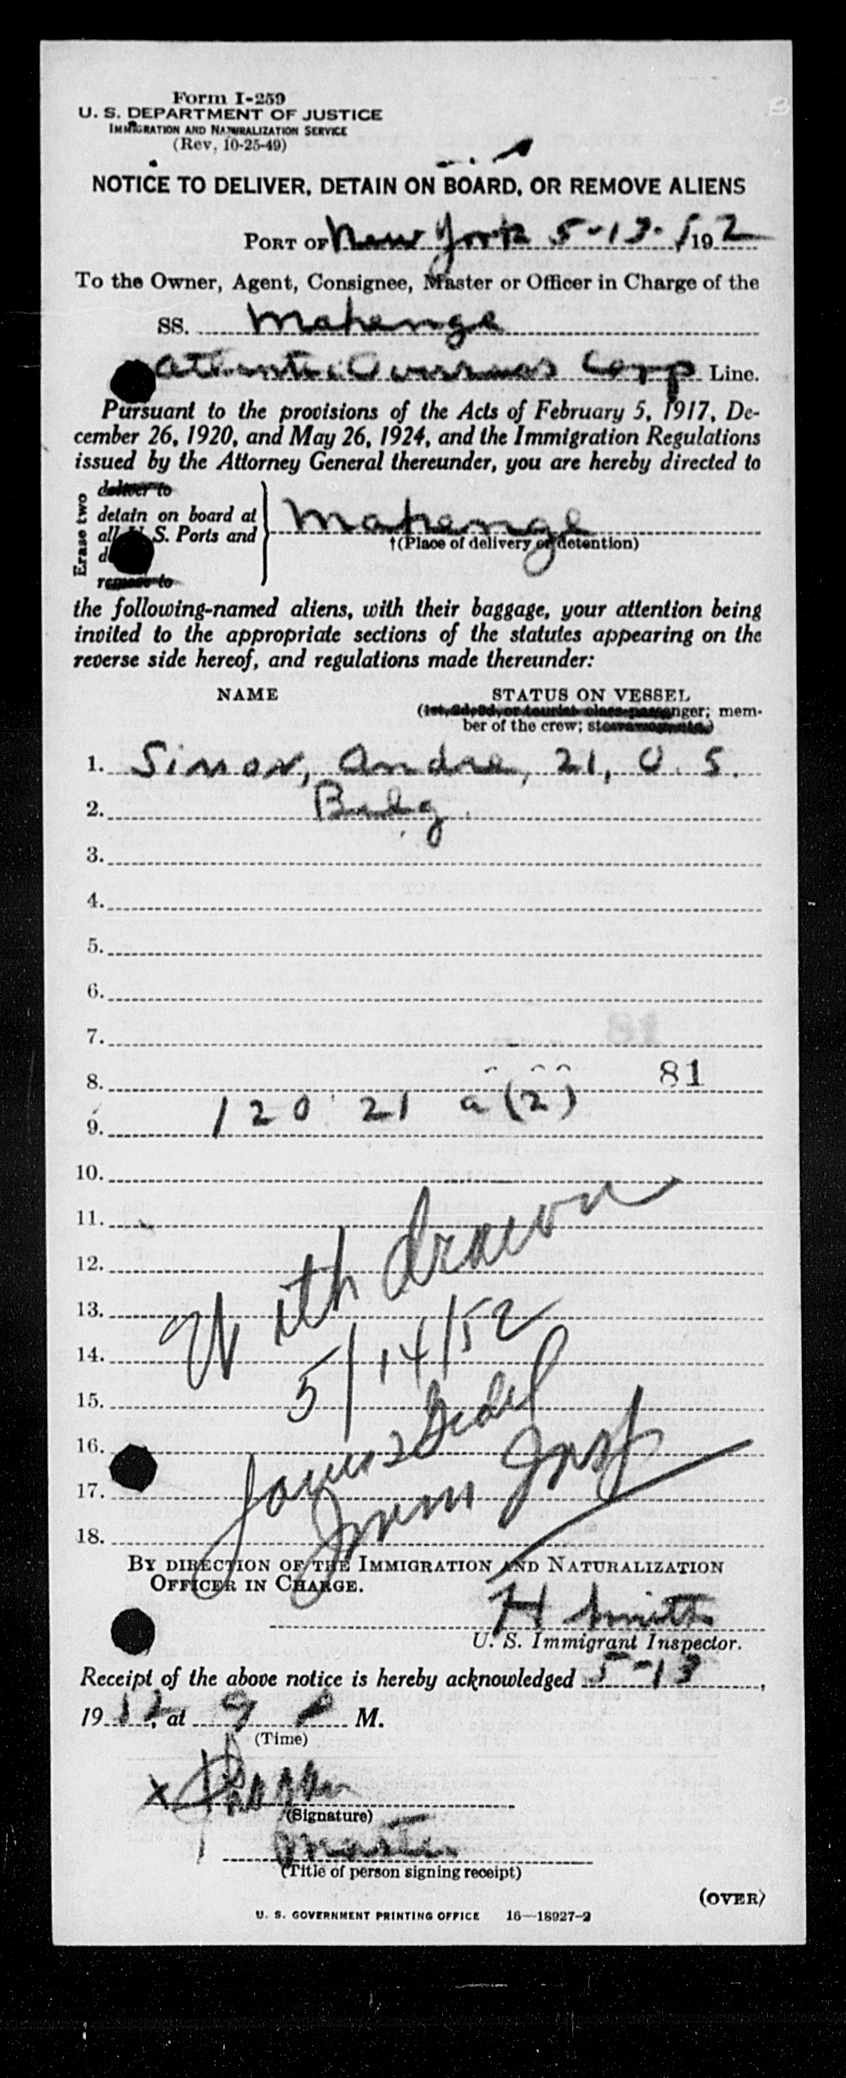 Form I-259
U. S. DEPARTMENT OF JUSTICE
IMMIGRATION AND NATURALIZATION SERVICE
(Rev. 10-25-49)
NOTICE TO DELIVER, DETAIN ON BOARD, OR REMOVE ALIENS
PORT OF New York 5-13- 1952
To the Owner, Agent, Consignee, Master or Officer in Charge of the
SS. Mahenge
Atlantic Overseas Corp Line.
Pursuant to the provisions of the Acts of February 5, 1917, De-
cember 26, 1920, and May 26, 1924, and the Immigration Regulations
issued by the Attorney General thereunder, you are hereby directed to
Erase two
deliver to
detain on board at
all U. S. Ports and
remove to
Mahenge
†(Place of delivery or detention)
the following-named aliens, with their baggage, your attention being
invited to the appropriate sections of the statutes appearing on the
reverse side hereof, and regulations made thereunder:
NAME STATUS ON VESSEL
(1st, 2d, 3d, or tourist class passenger; mem-
ber of the crew; stowaway, etc.)
1. Simon, Andre, 21, O. S.
2. Belg.
3.
4.
5.
6.
7.
8. 81
9. 120 21 a (2)
10.
11.
12.
13.
14.
15.
16.
17.
18.
Withdrawn
5/14/52
James
Imm Insp
BY DIRECTION OF THE IMMIGRATION AND NATURALIZATION
OFFICER IN CHARGE.
H Smith
U. S. Immigrant Inspector.
Receipt of the above notice is hereby acknowledged 5-13,
1952, at 9 P M.
(Time)
X
(Signature)
Master
(Title of person signing receipt)
(OVER)
U. S. GOVERNMENT PRINTING OFFICE 16—18927-2